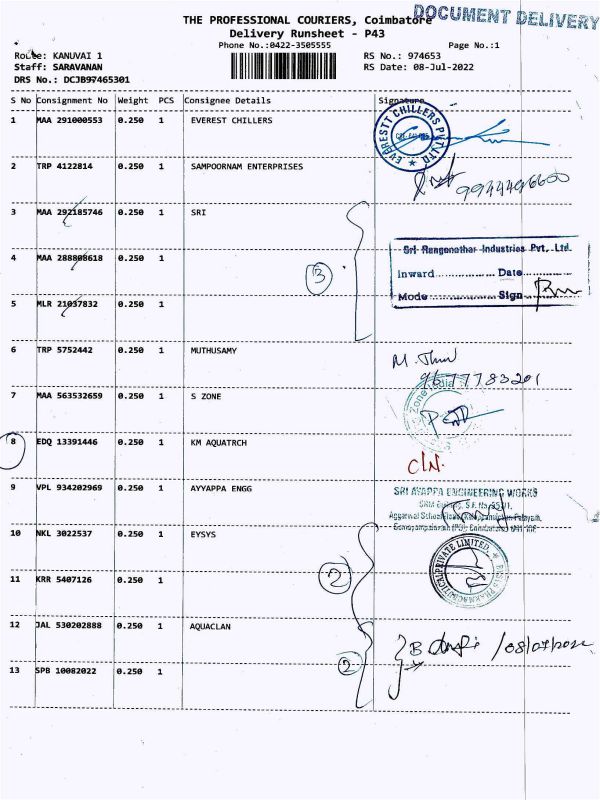 THE PROFESSIONAL COURIERS, Coimbatore
DOCUMENT DELIVERY
Delivery Runsheet - P43
Phone No.:0422-3505555
Page No.:1
Route: KANUVAI 1
RS No.: 974653
Staff: SARAVANAN
RS Date: 08-Jul-2022
DRS No.: DCJB97465301
S No Consignment No Weight PCS Consignee Details Signature
1 MAA 291000553 0.250 1 EVEREST CHILLERS
EVERESTT CHILLERS PVT LTD
2 TRP 4122814 0.250 1 SAMPOORNAM ENTERPRISES
3 MAA 292185746 0.250 1 SRI
4 MAA 288808618 0.250 1
3
Sri Rengonathar Industries Pvt. Ltd.
Inward Date
Mode Sign
5 MLR 21037832 0.250 1
6 TRP 5752442 0.250 1 MUTHUSAMY
9677783201
7 MAA 563532659 0.250 1 S ZONE
8 EDQ 13391446 0.250 1 KM AQUATRCH
C/N.
9 VPL 934202969 0.250 1 AYYAPPA ENGG
SRI AYAPPA ENGINEERING WORKS
10 NKL 3022537 0.250 1 EYSYS
2
11 KRR 5407126 0.250 1
12 JAL 530202888 0.250 1 AQUACLAN
2
13 SPB 10082022 0.250 1